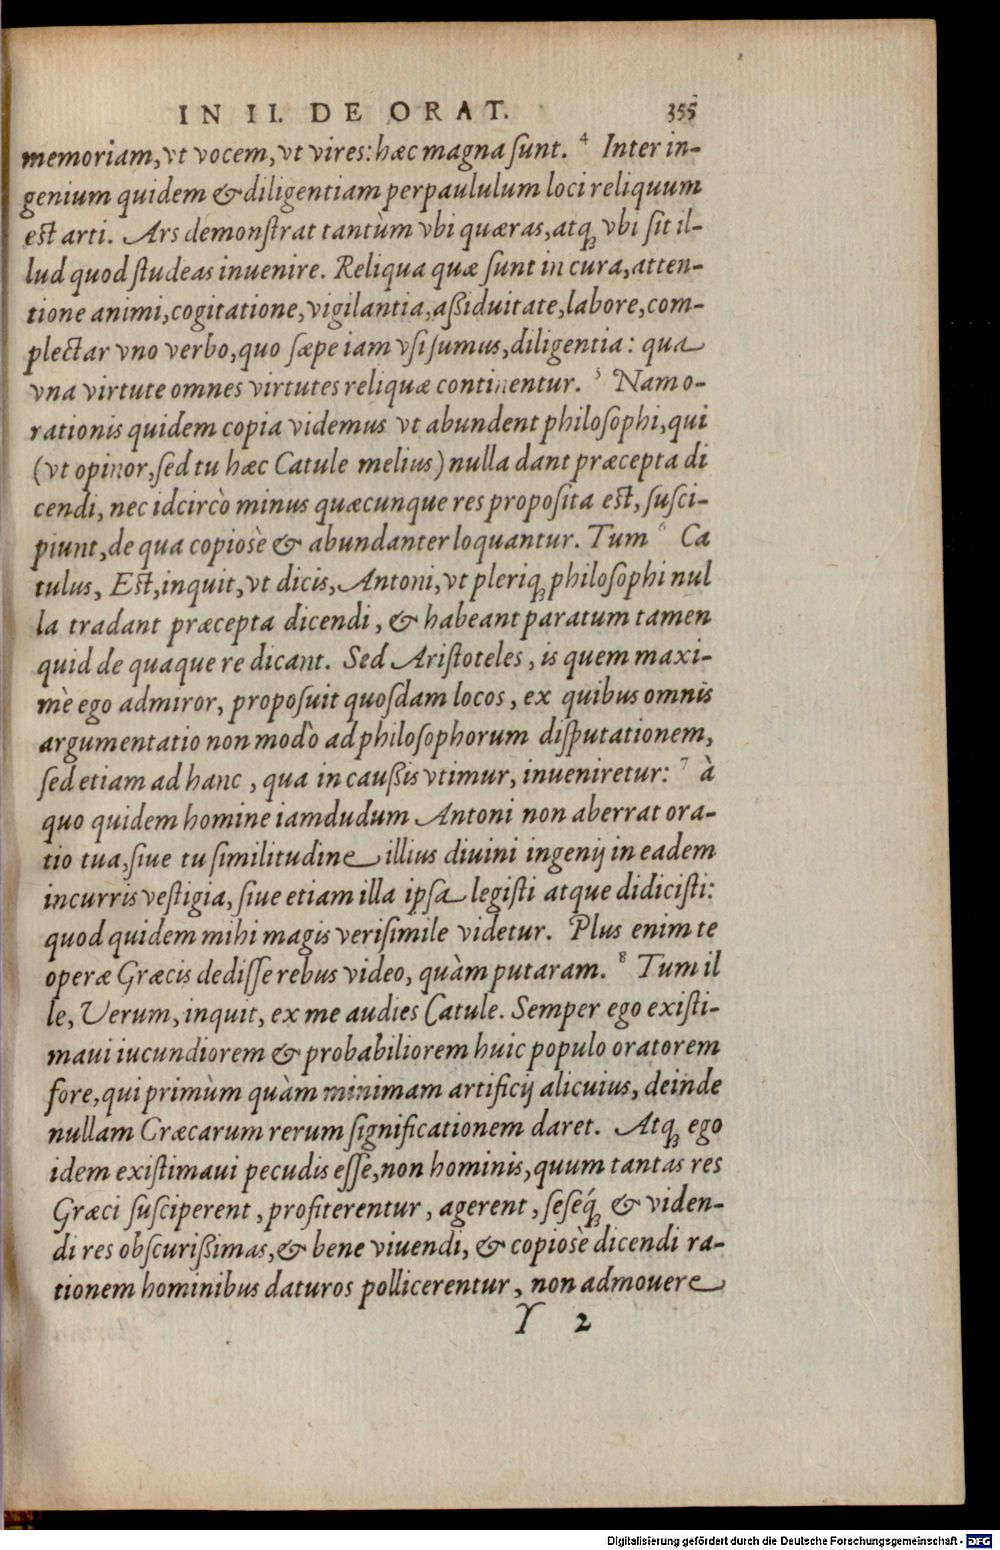 IN II. DE ORAT. 355
memoriam, vt vocem, vt vires: hæc magna ſunt. 4 Inter in-
genium quidem & diligentiam perpaululum loci reliquum
est arti. Ars demonſtrat tantùm vbi quæras, atq; vbi ſit il-
lud quod ſtudeas inuenire. Reliqua quæ ſunt in cura, atten-
tione animi, cogitatione, vigilantia, aßiduitate, labore, com-
plectar vno verbo, quo ſæpe iam vſi ſumus, diligentia: qua
vna virtute omnes virtutes reliquæ continentur. 5 Nam o-
rationis quidem copia videmus vt abundent philoſophi, qui
(vt opinor, ſed tu hæc Catule melius) nulla dant præcepta di
cendi, nec idcircò minus quæcunque res propoſita est, ſuſci-
piunt, de qua copiosè & abundanter loquantur. Tum 6 Ca
tulus, Est, inquit, vt dicis, Antoni, vt pleriq; philoſophi nul
la tradant præcepta dicendi, & habeant paratum tamen
quid de quaque re dicant. Sed Ariſtoteles, is quem maxi-
mè ego admiror, propoſuit quoſdam locos, ex quibus omnis
argumentatio non modò ad philoſophorum diſputationem,
ſed etiam ad hanc, qua in caußis vtimur, inueniretur: 7 à
quo quidem homine iamdudum Antoni non aberrat ora-
tio tua, ſiue tu ſimilitudine illius diuini ingenij in eadem
incurris veſtigia, ſiue etiam illa ipſa legiſti atque didiciſti:
quod quidem mihi magis veriſimile videtur. Plus enim te
operæ Græcis dediſſe rebus video, quàm putaram. 8 Tum il
le, Verum, inquit, ex me audies Catule. Semper ego exiſti-
maui iucundiorem & probabiliorem huic populo oratorem
fore, qui primùm quàm minimam artificij alicuius, deinde
nullam Græcarum rerum ſignificationem daret. Atq; ego
idem exiſtimaui pecudis eſſe, non hominis, quum tantas res
Græci ſuſciperent, profiterentur, agerent, ſeſeq́; & viden-
di res obſcurißimas, & bene viuendi, & copiosè dicendi ra-
tionem hominibus daturos pollicerentur, non admouere
Y 2
Digitalisierung gefördert durch die Deutsche Forschungsgemeinschaft - DFG